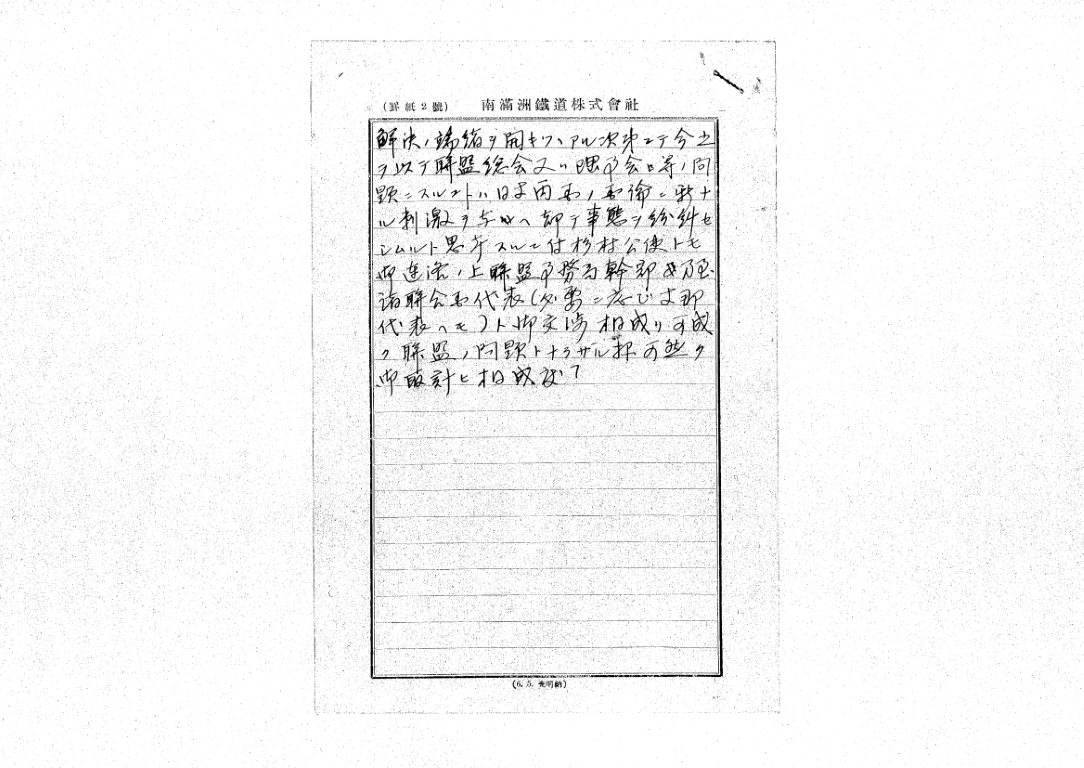 (罫紙2號) 南滿洲鐵道株式會社
解決ノ端緒ヲ開キツヽアル次第ニテ今之
ヲ以テ聯盟総会又ハ理事会等ノ問
題ニスルコトハ日支両国ノ国論ニ新ナ
ル刺激ヲ与ヘ却テ事態ヲ紛糾セ
シムルト思考スルニ付杉村公使トモ
御連絡ノ上聯盟事務局幹部及
諸聯合国代表(必要ニ応ジ支那
代表ヘモ)ト御交渉相成リ可成
ク聯盟ノ問題トナラザル様可然ク
御取計ヒ相成度